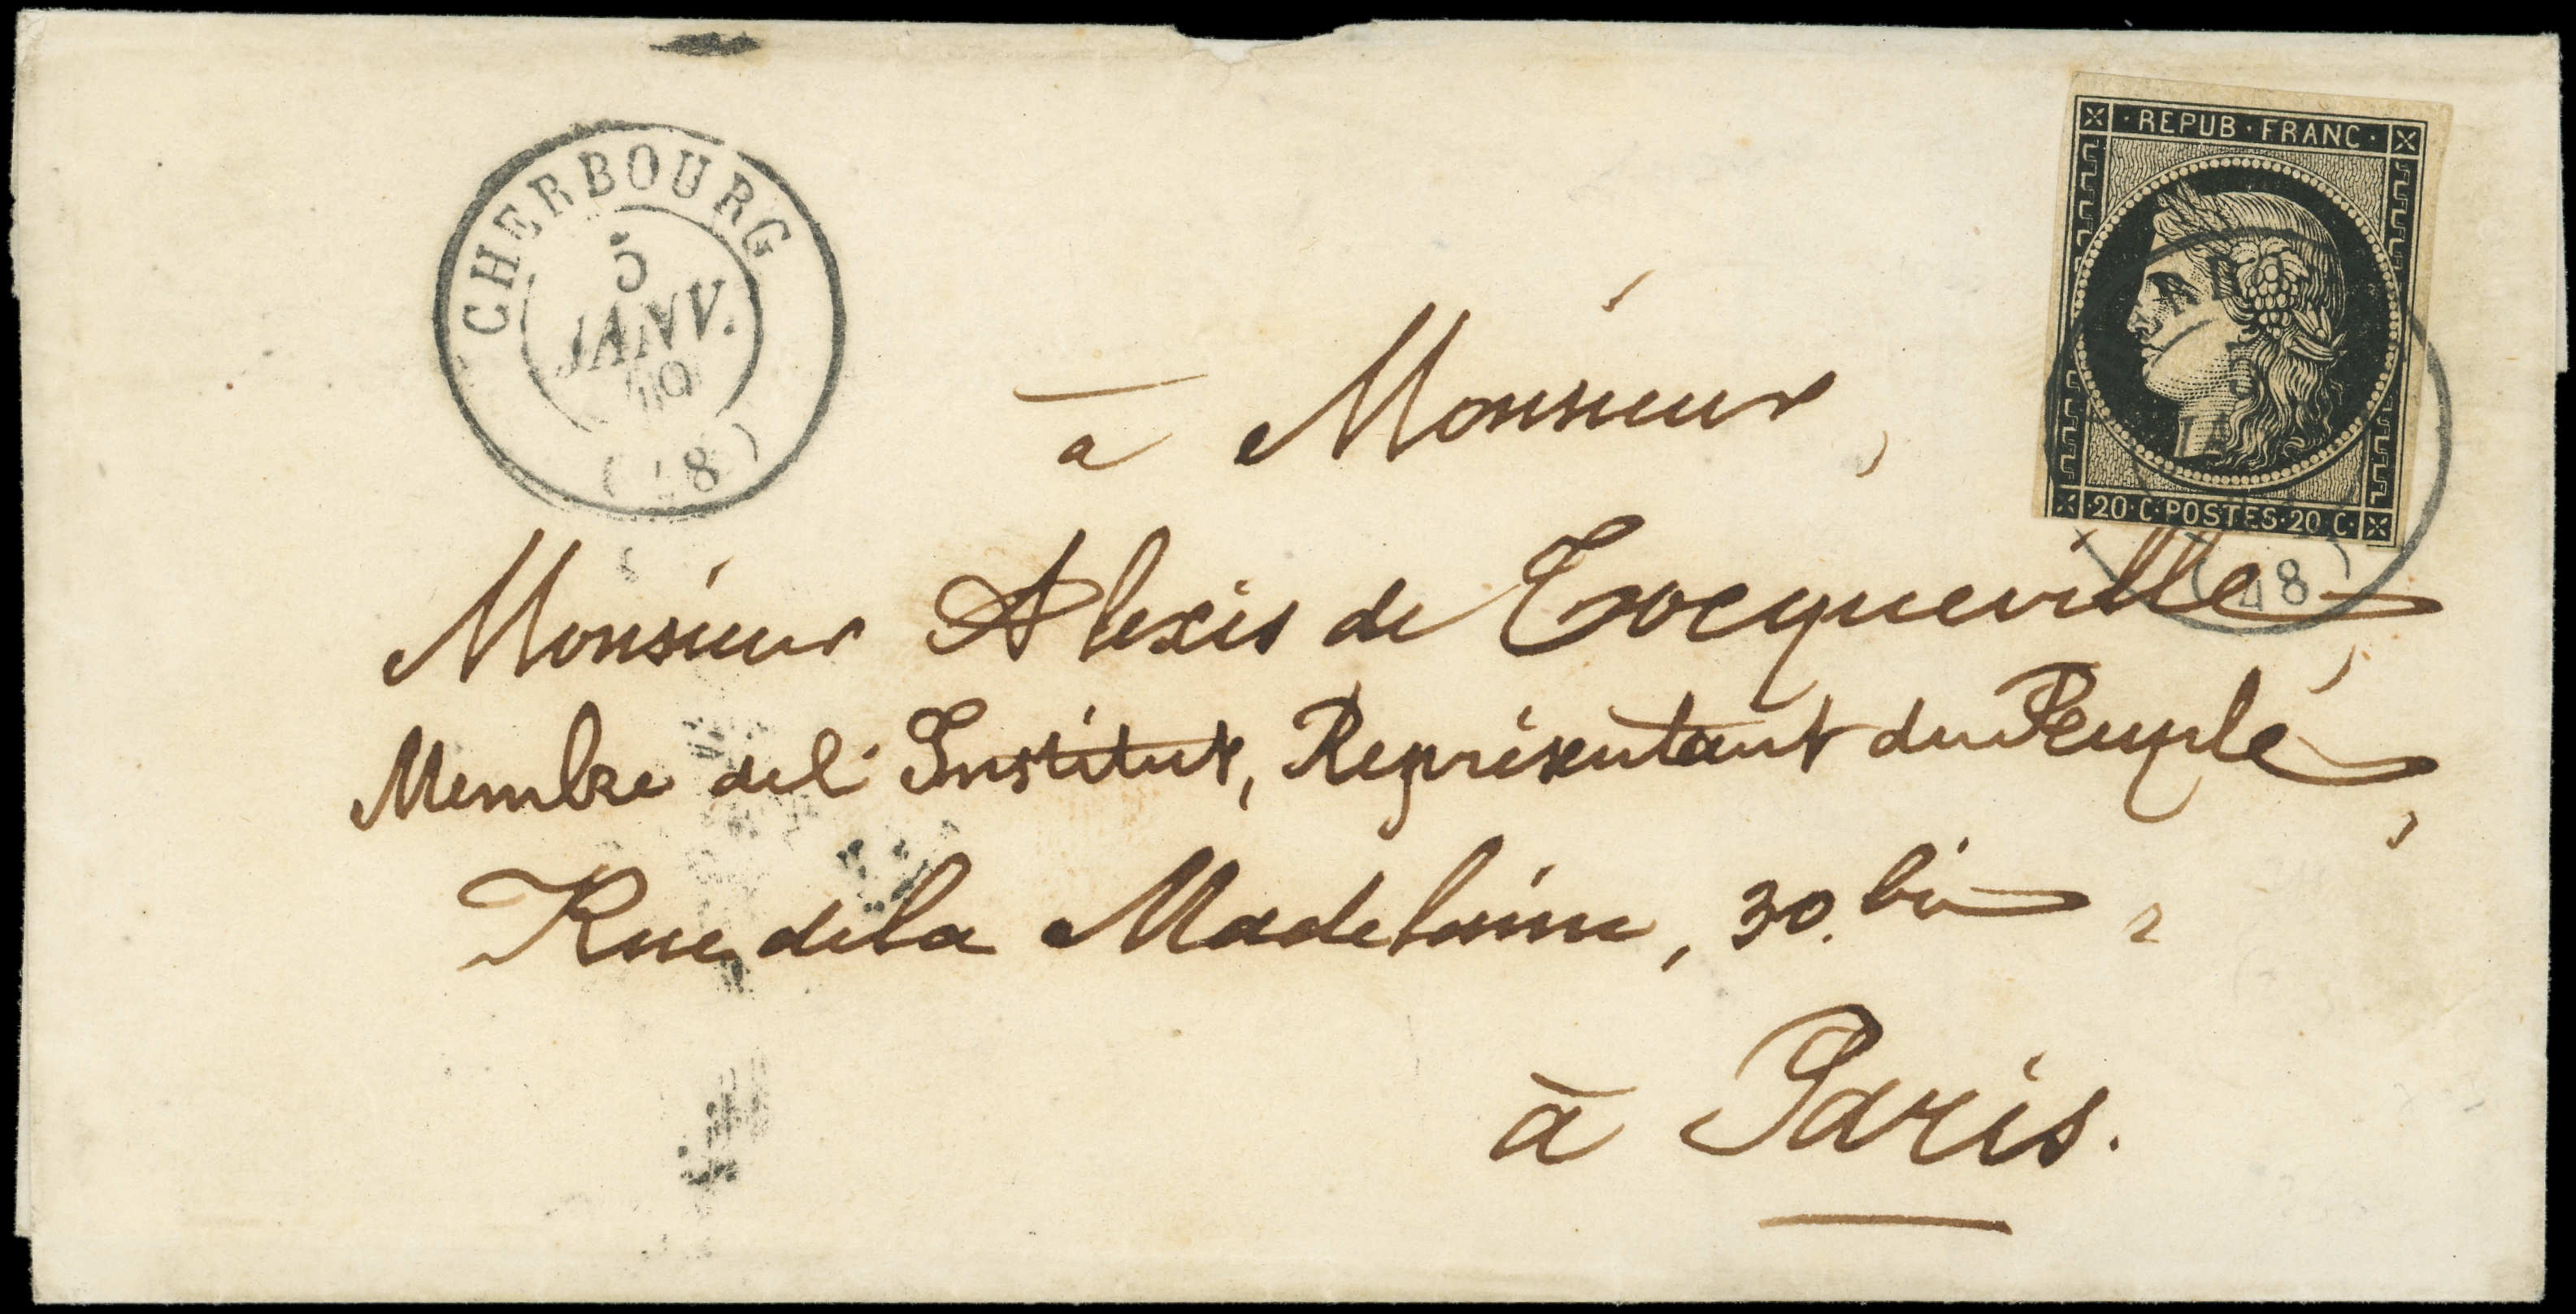 CHERBOURG
5
JANV.
(48)
REPUB·FRANC·
20·C·POSTES·20 C·
(48)
à Monsieur,
Monsieur Alexis de Tocqueville,
Membre de l'Institut, Représentant du Peuple,
Rue de la Madeleine, 30. bis,
à Paris.